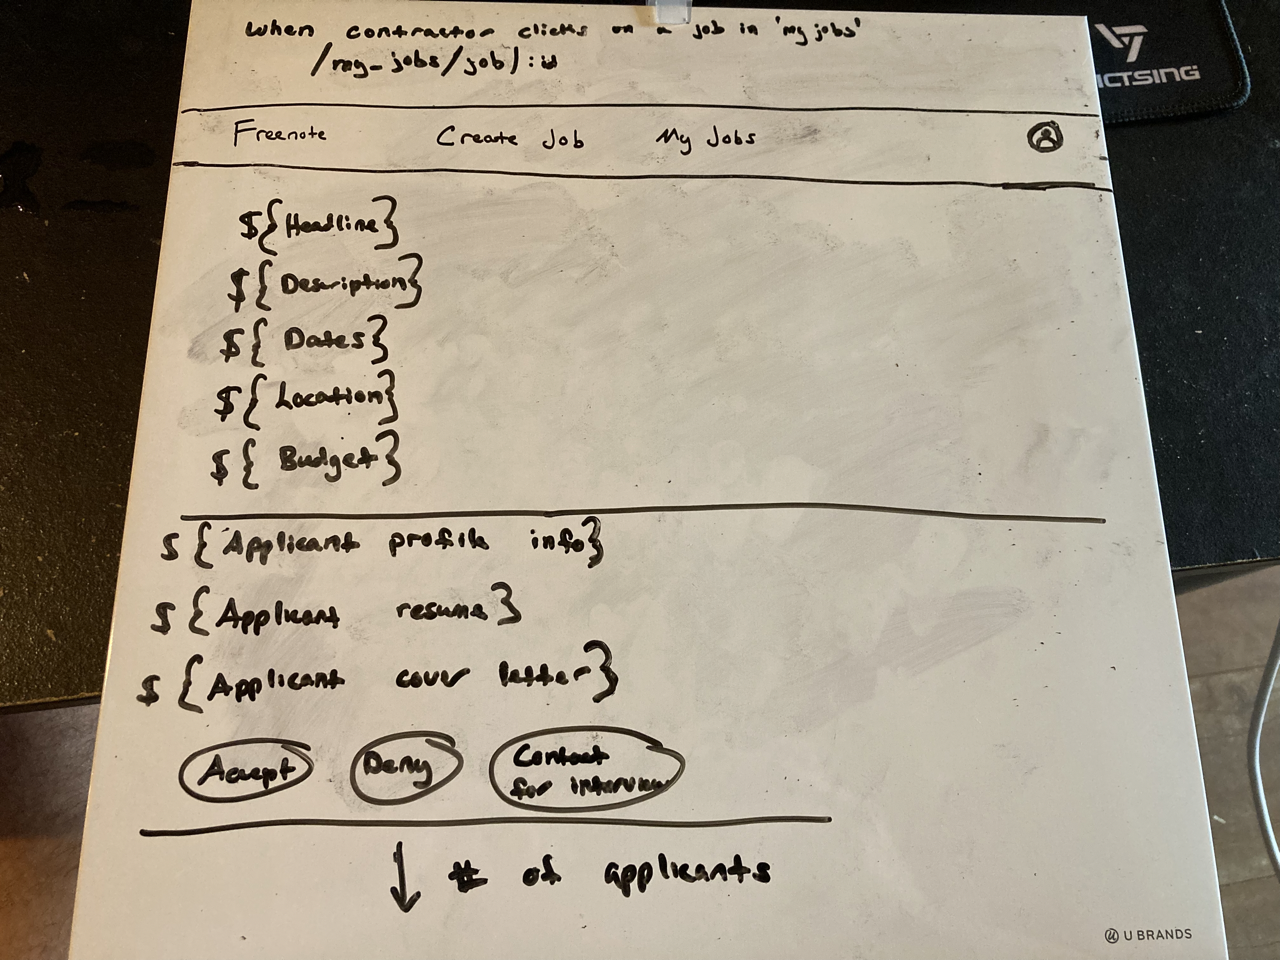 when contractor clicks on a job in 'my jobs'
/my_jobs/job/:id
Freenote Create Job My Jobs
${Headline}
${Description}
${Dates}
${Location}
${Budget}
${Applicant profile info}
${Applicant resume}
${Applicant cover letter}
Accept Deny Contact for interview
↓ # of applicants
U BRANDS
ICTSING